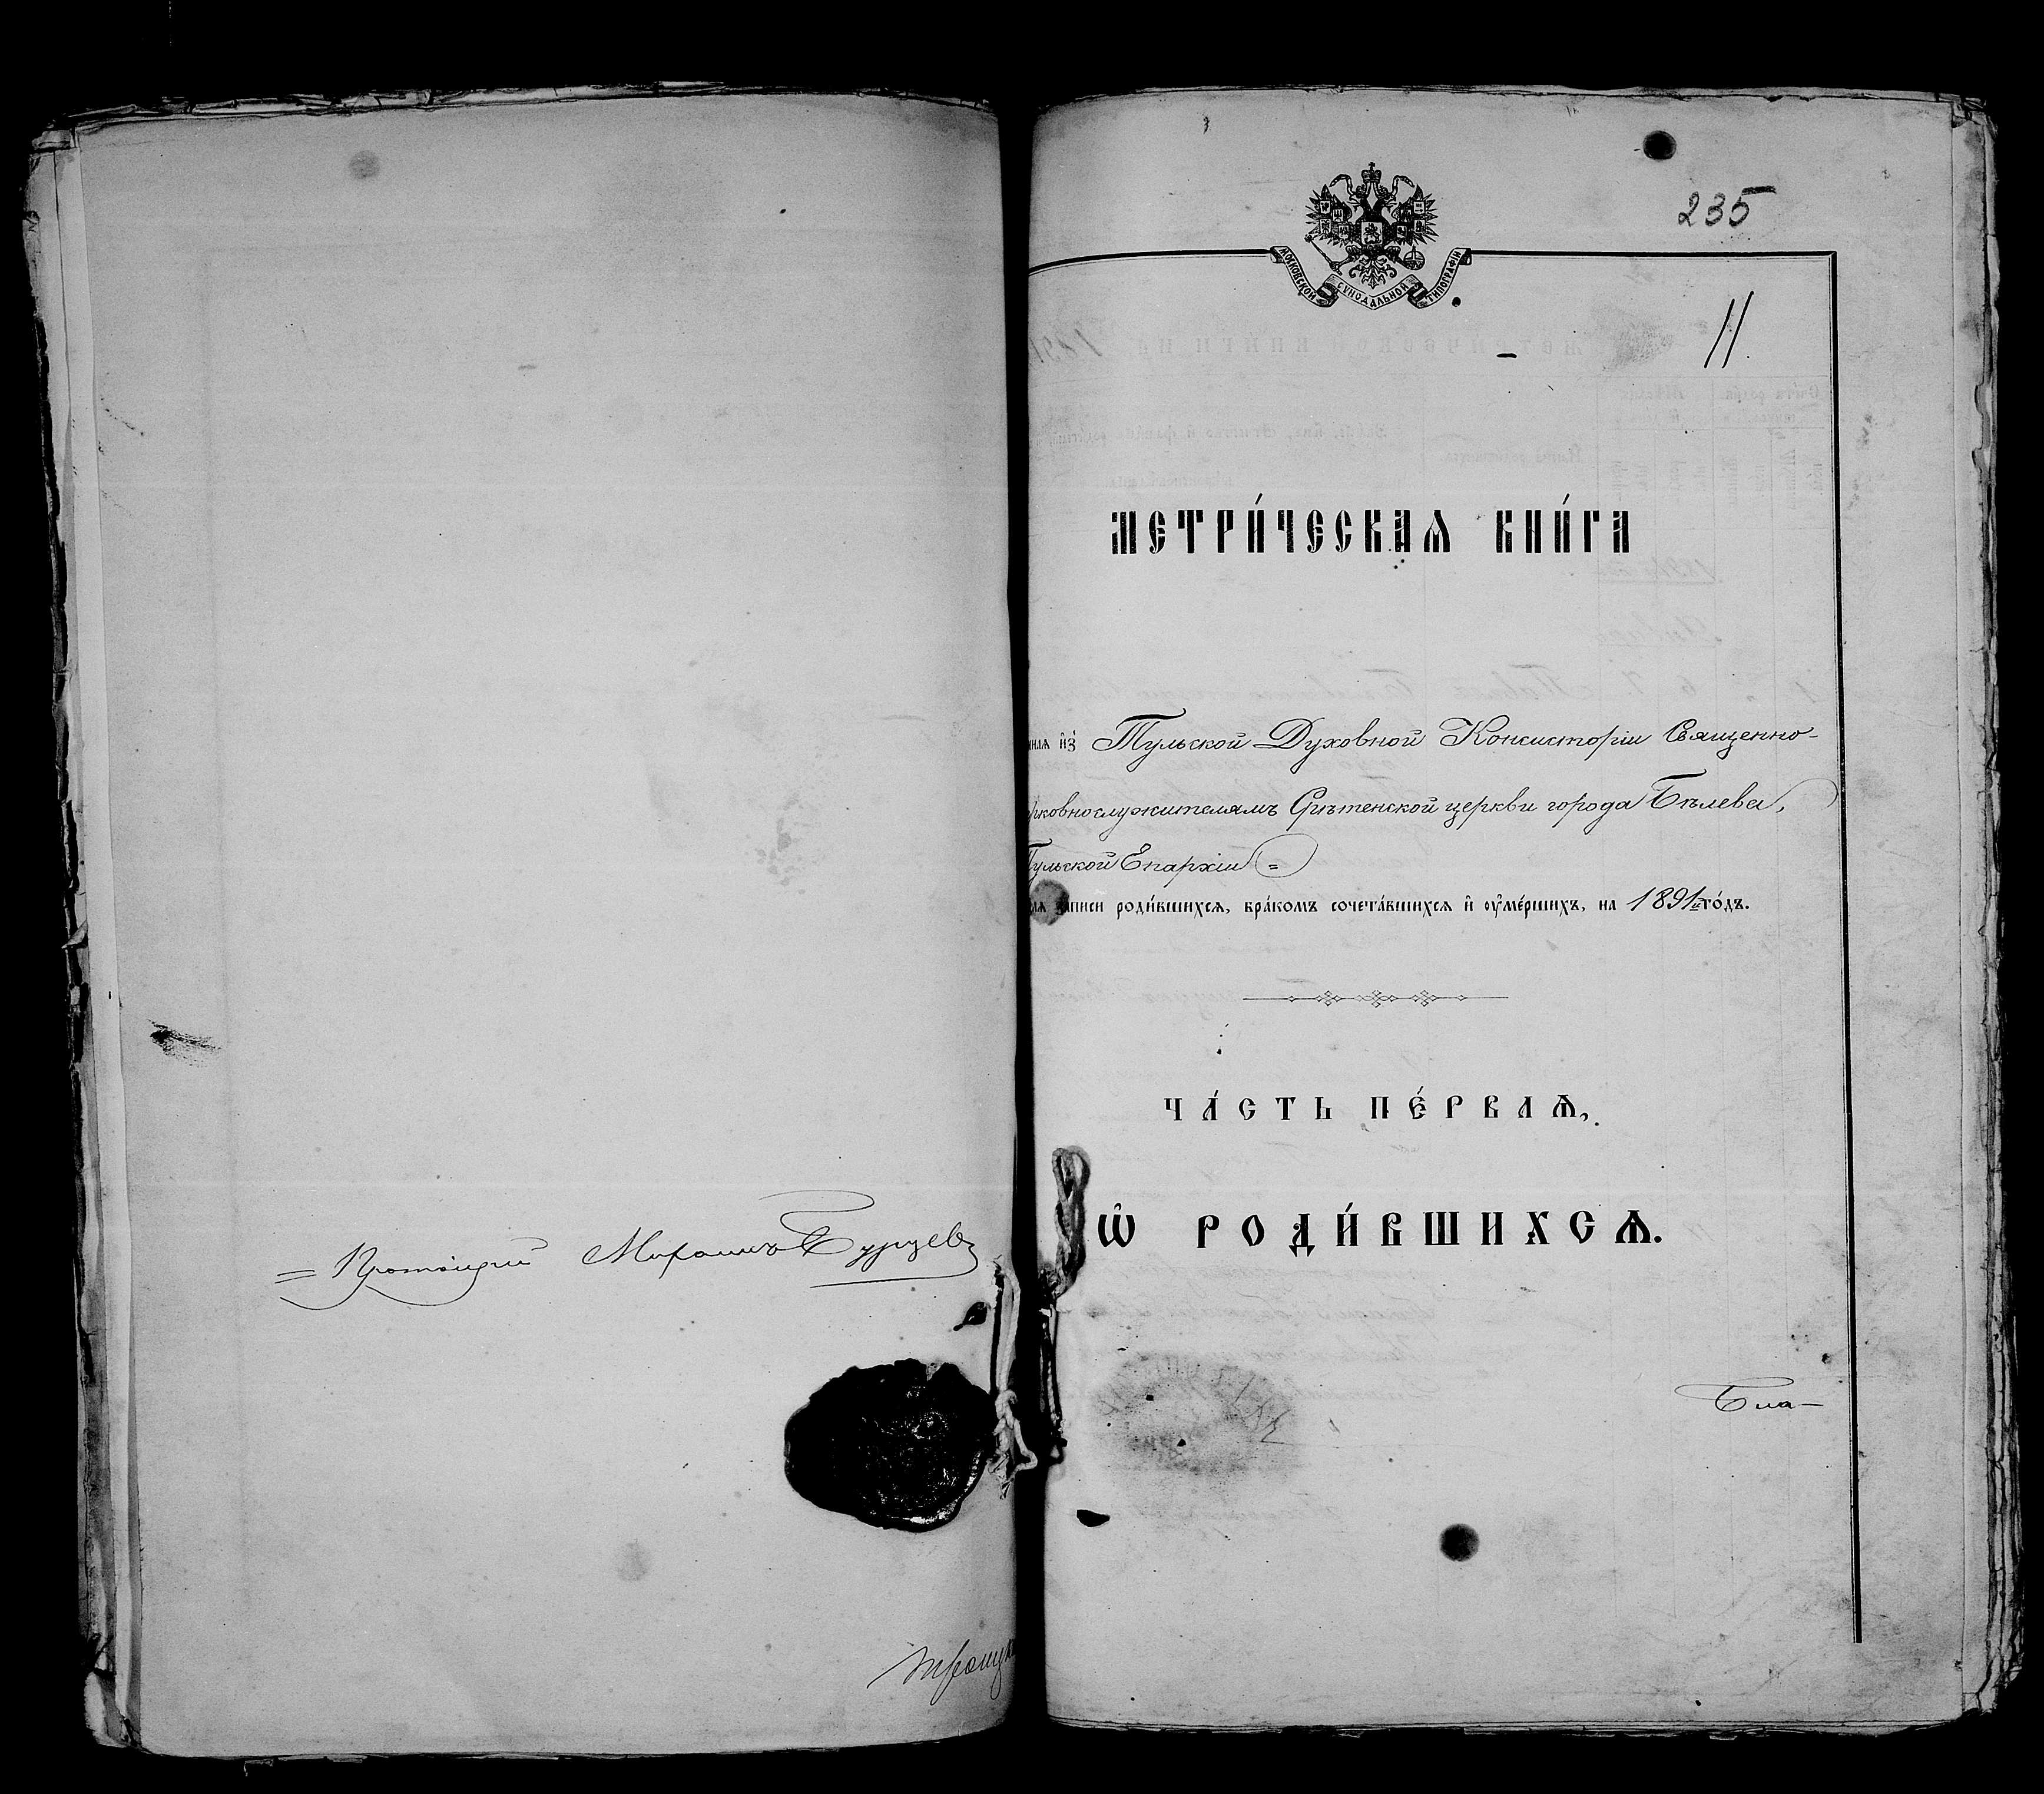 Протоіерей Бурцевъ
235
МОСКОВСКОЙ СѴНОДАЛЬНОЙ ТИПОГРАФІИ
11
МЕТРИ́ЧЕСКАѦ КНИ́ГА
из̾ Тульской Духовной Консисторіи Священно-
рковнослужителямъ Срѣтенской церкви города Бѣлева,
Тульской Епархіи =
записи роди́вшихсѧ, бра́комъ сочета́вшихсѧ и҆ ᲂу҆ме́ршихъ, на 1891й го́дъ.
ЧА́СТЬ ПЕ́РВАѦ,
Ѡ҆ РОДИ́ВШИХСѦ.
Бла-